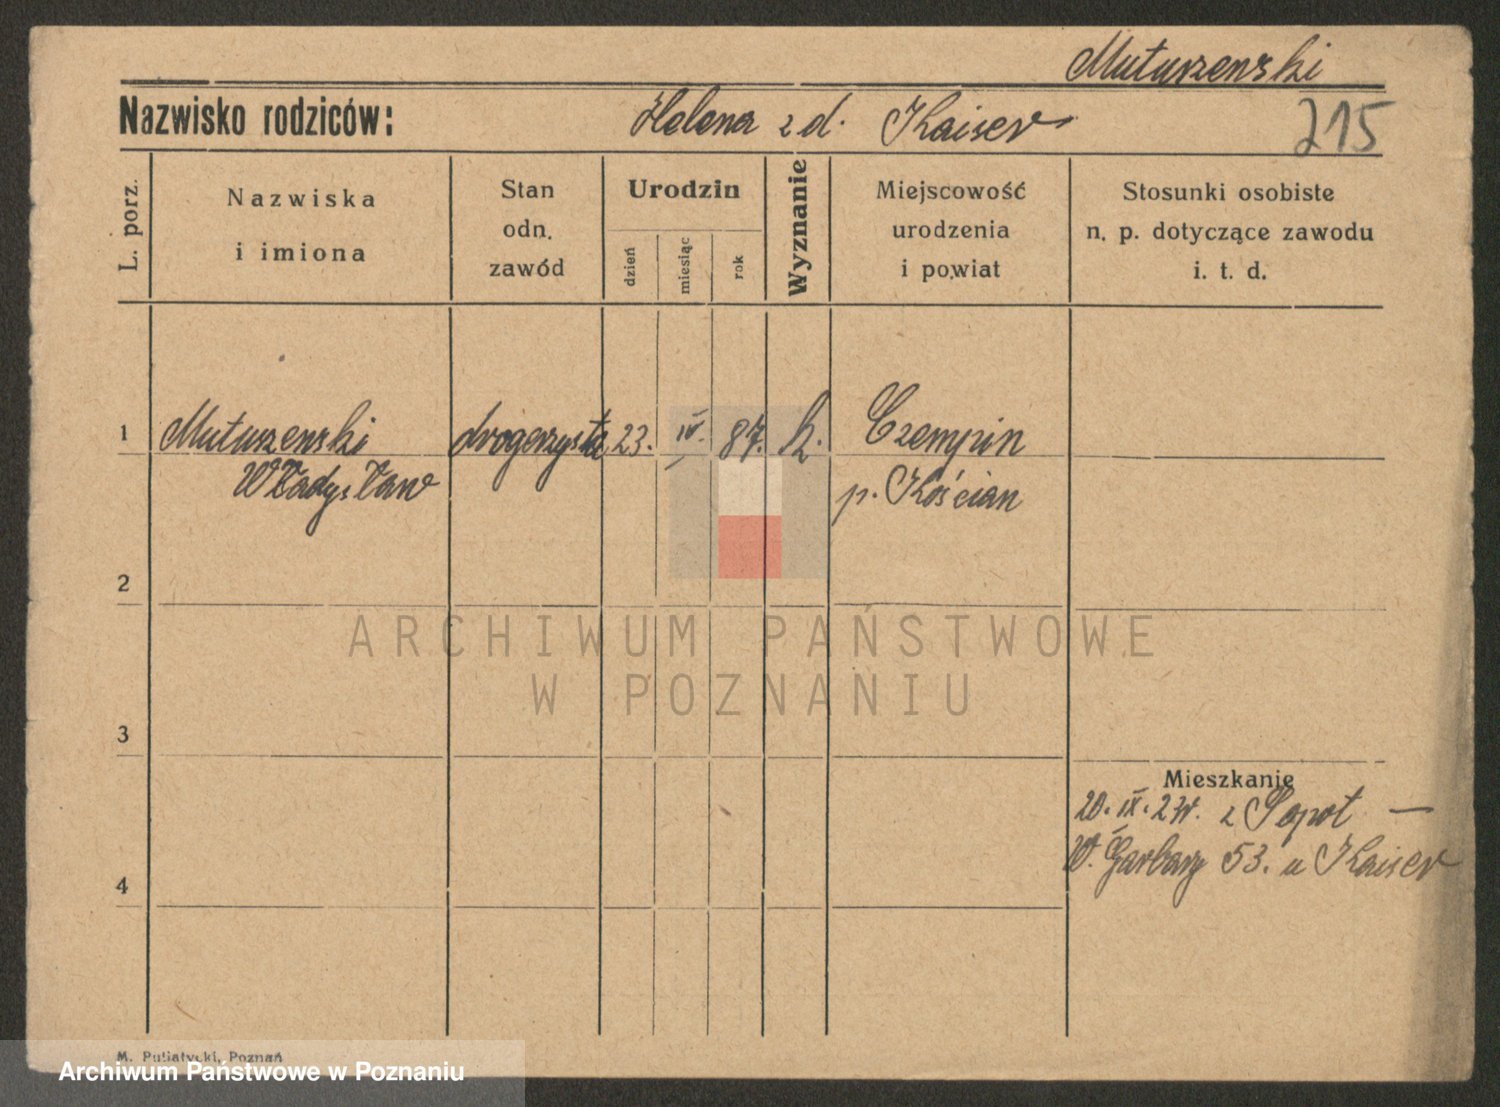 Mutuszenski
Nazwisko rodziców: Helena z d. Kaiser 215
L. porz.
Nazwiska
i imiona
Stan
odn.
zawód
Urodzin
dzień
miesiąc
rok
Wyznanie
Miejscowość
urodzenia
i powiat
Stosunki osobiste
n. p. dotyczące zawodu
i. t. d.
1 Mutuszenski drogerzysta 23. IV. 87. k. Czempin
Władysław p. Kościan
2
ARCHIWUM PAŃSTWOWE
W POZNANIU
3
Mieszkanie
20. IX. z Sopot —
W. Garbary 53. u Kaiser
4
M. Putiatycki, Poznań
Archiwum Państwowe w Poznaniu